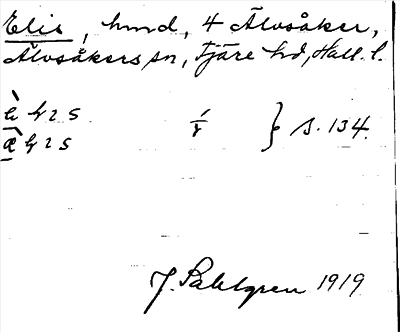 Elis, hund, 4 Älvsåker,
Älvsåkers sn, Fjäre hd, Hall. l.
} s. 134.
J. Sahlgren 1919